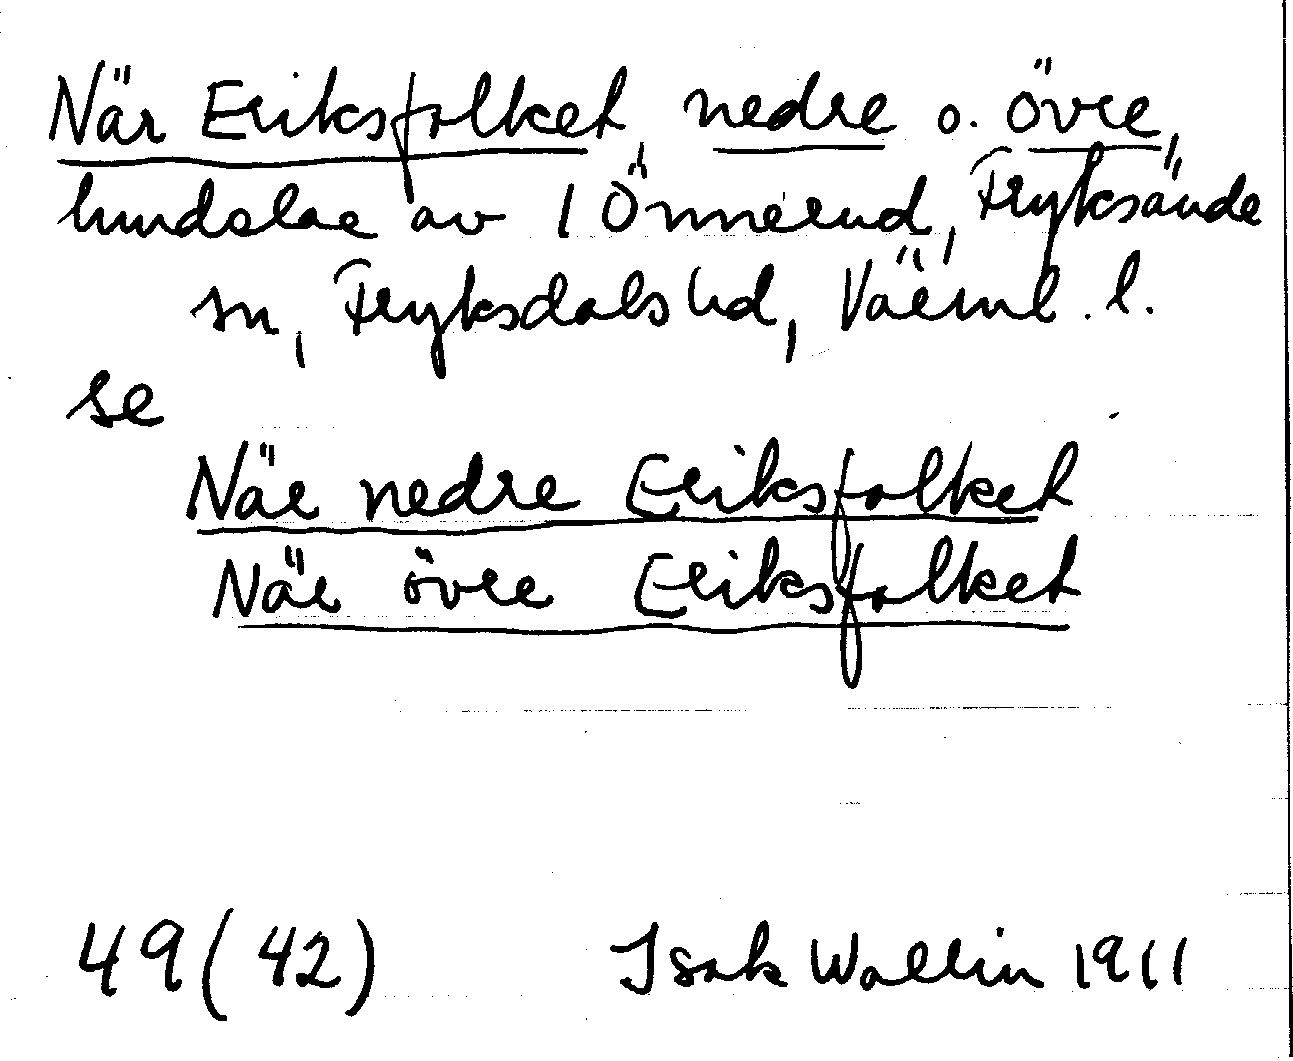 När Eriksfolket, nedre o. övre,
hemdelar av 1 Önnerud, Fryksände
sn, Fryksdals hd, Värml. l.
se
När nedre Eriksfolket
När övre Eriksfolket
49 (42) Isak Wallin 1911